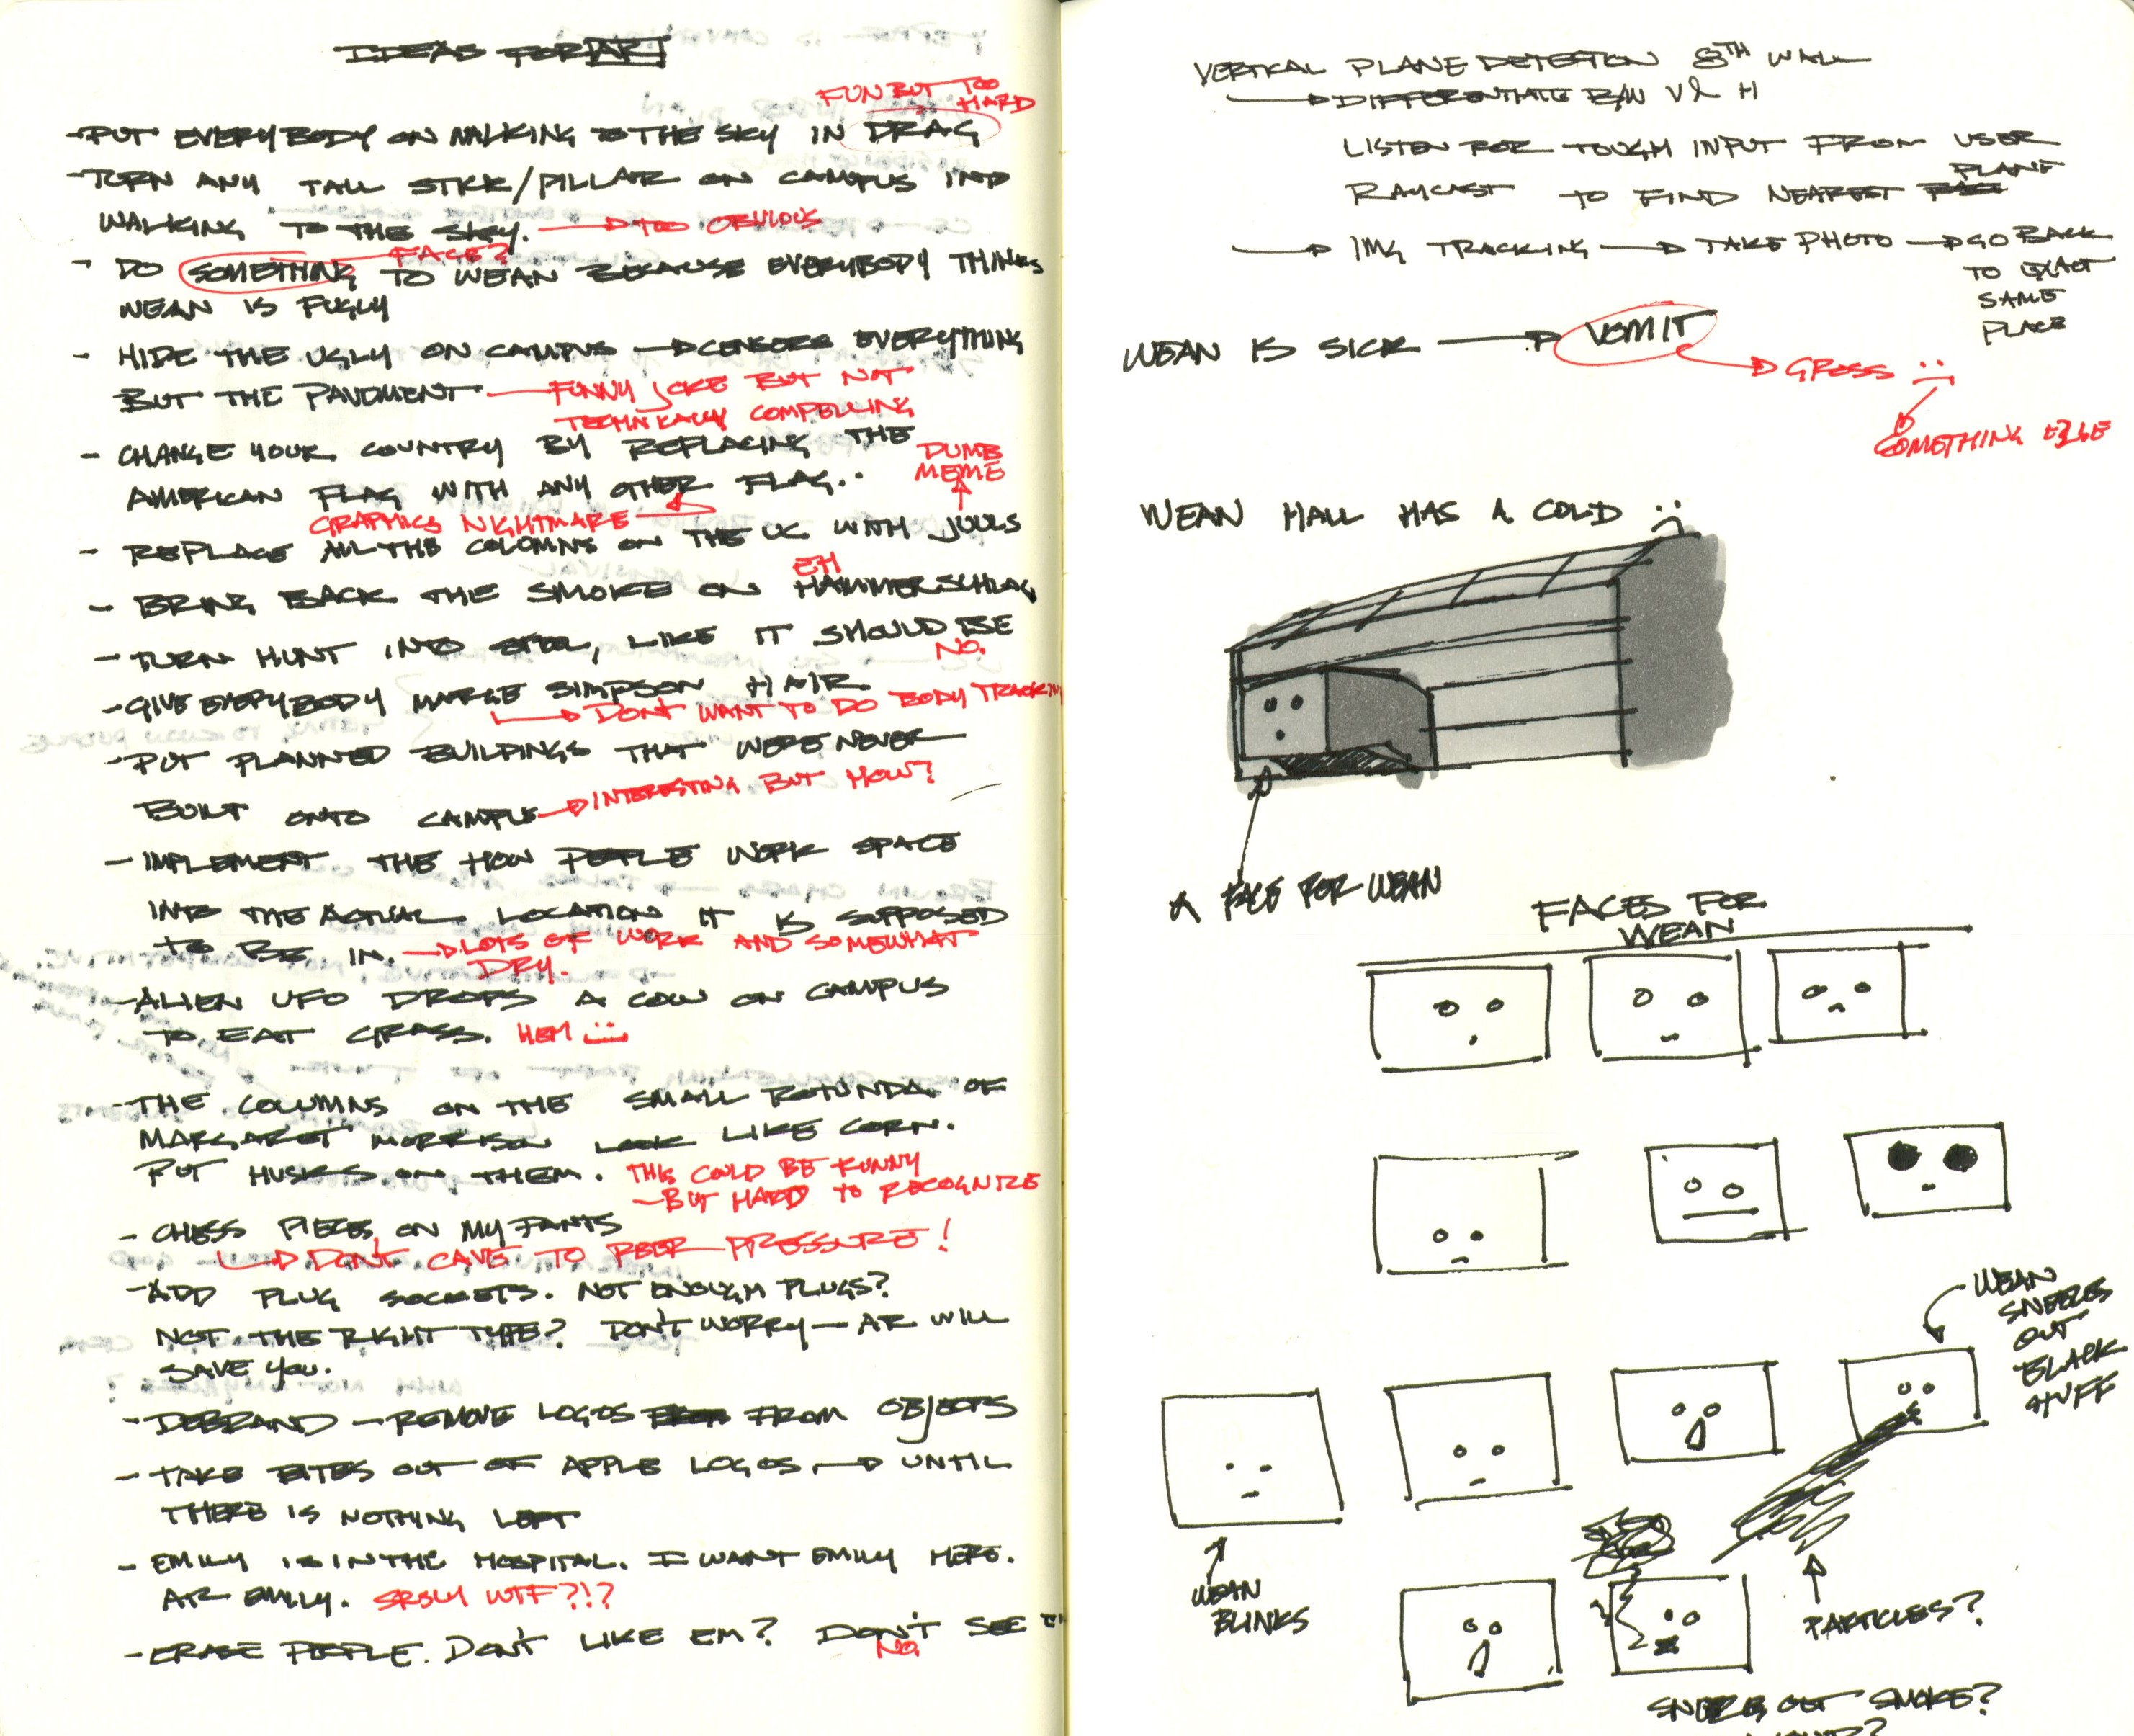 IDEAS FOR AR
FUN BUT TOO
HARD
-PUT EVERYBODY ON WALKING TO THE SKY IN DRAG
-TURN ANY TALL STICK/PILLAR ON CAMPUS INTO
WALKING TO THE SKY. TOO OBVIOUS
FACE?
- DO SOMETHING TO WEAN BECAUSE EVERYBODY THINKS
WEAN IS FUGLY
- HIDE THE UGLY ON CAMPUS → CENSORS EVERYTHING
BUT THE PAVEMENT FUNNY JOKE BUT NOT
TECHNICALLY COMPELLING
- CHANGE YOUR COUNTRY BY REPLACING THE
AMERICAN FLAG WITH ANY OTHER FLAG..
DUMB
MEME
GRAPHICS NIGHTMARE
- REPLACE ALL THE COLUMNS ON THE UC WITH JUULS
EH
- BRING BACK THE SMOKE ON HAMMERSCHLAG
- TURN HUNT INTO, LIKE IT SHOULD BE
NO.
-GIVE EVERYBODY MARGE SIMPSON HAIR
→ DON'T WANT TO DO BODY TRACKIN
-PUT PLANNED BUILDINGS THAT WERE NEVER
BUILT ONTO → INTERESTING BUT HOW?
- IMPLEMENT THE HOW PEOPLE WORK SPACE
INTO THE ACTUAL LOCATION IT IS SUPPOSED
TO BE IN. → LOTS OF WORK AND SOMEWHAT
DRY.
-ALIEN UFO DROPS A COW ON CAMPUS
TO EAT GRASS. HEM
-THE COLUMNS ON THE SMALL ROTUNDA OF
MARGARET MORRISON LOOK LIKE CORN.
PUT HUSKS ON THEM. THIS COULD BE FUNNY
-BUT HARD TO RECOGNIZE
- CHESS PIECES ON MY PANTS
→ DON'T CAVE TO PEER PRESSURE!
-ADD PLUG SOCKETS. NOT ENOUGH PLUGS?
NOT THE RIGHT TYPE? DON'T WORRY — AR WILL
SAVE YOU.
-DEBRAND - REMOVE LOGOS FROM OBJECTS
- TAKE BITES OUT OF APPLE LOGOS → UNTIL
THERE IS NOTHING LEFT
- EMILY IS IN THE HOSPITAL. I WANT EMILY HERE.
AR EMILY. SRSLY WTF?!?
-ERASE PEOPLE. DON'T LIKE EM? DON'T SEE
NO.
VERTICAL PLANE DETECTION 8TH WALL
→ DIFFERENTIATE B/W V & H
LISTEN FOR TOUGH INPUT FROM USER
RAYCAST TO FIND NEAREST PLANE
→ IMG TRACKING → TAKE PHOTO → GO BACK
TO EXACT
SAME
PLACE
WEAN IS SICK → VOMIT
→ GROSS :(
SOMETHING ELSE
WEAN HALL HAS A COLD :(
A FACE FOR WEAN
FACES FOR
WEAN
WEAN
SNEEZES
OUT
BLACK
STUFF
WEAN
BLINKS
PARTICLES?
SNEEZE OUT SMOKE?